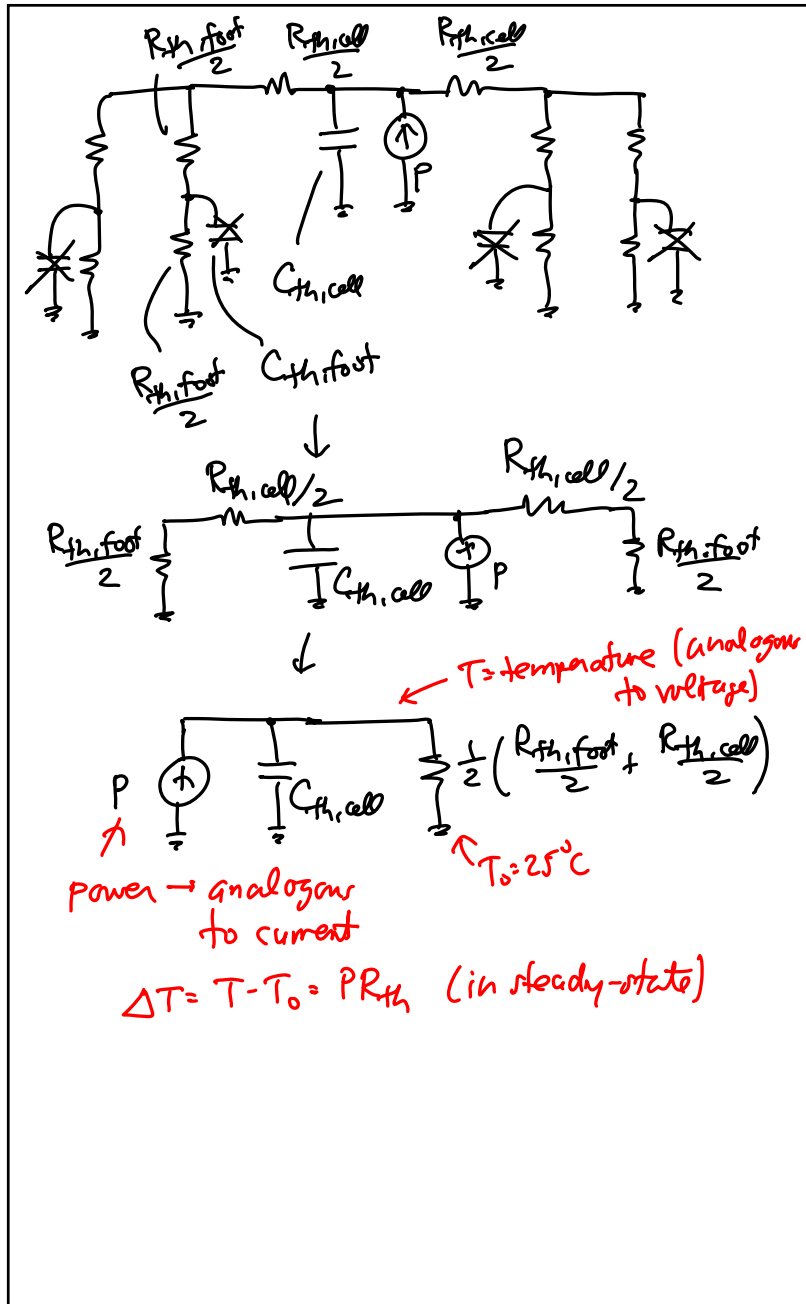 R_th,foot/2 R_th,cell/2 R_th,cell/2
P
C_th,cell
R_th,foot/2 C_th,foot
↓
R_th,cell/2 R_th,cell/2
R_th,foot/2 C_th,cell P R_th,foot/2
↓
T = temperature (analogous
to voltage)
P C_th,cell 1/2 (R_th,foot/2 + R_th,cell/2)
T₀ = 25°C
power → analogous
to current
ΔT = T - T₀ = PR_th (in steady-state)